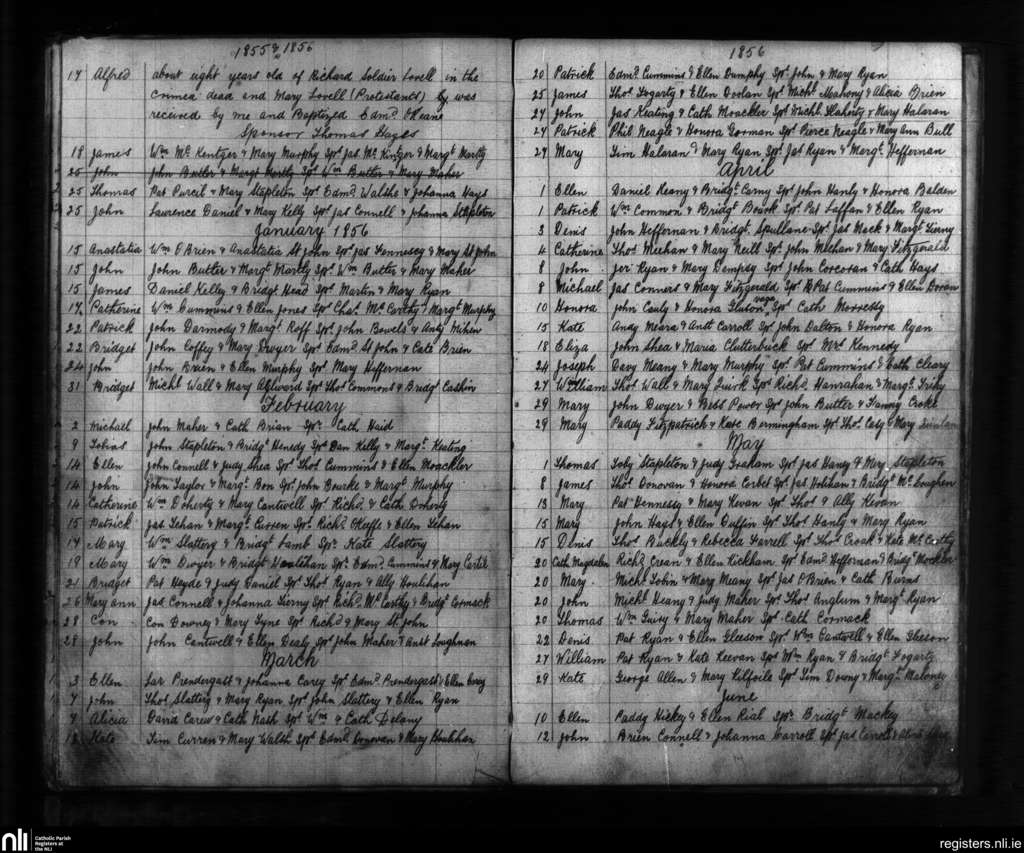 1855 & 1856
17 Alfred about eight years old of Richard Soldier Lovell in the
Crimea dead and Mary Lovell (Protestants) was
received by me and Baptized Edmd OKeane
Sponsor Thomas Hayes
18 James Wm Mc Kentger & Mary Murphy Spr Jas Mc Kintger & Margt Martly
25 John John Butler & Margt Martly Spr Wm Butler & Mary Maher
25 Thomas Pat Purcil & Mary Stapleton Spr Edmd Walshe & Johanna Hays
25 John Laurence Daniel & Mary Kelly Spr Jas Connell & Johanna Stapleton
January 1856
15 Anastatia Wm O'Brien & Anastatia St John Spr Jas Fennessy & Mary St John
15 John John Butler & Margt Martly Spr Wm Butler & Mary Maher
15 James Daniel Kelley & Bridgt Head Spr Martin & Mary Ryan
17 Catherine Wm Cummins & Ellen Jones Spr Chas Mc Carthy & Margt Murphy
22 Patrick John Darmody & Margt Roff Spr John Bowels & Anty Mihen
22 Bridget John Coffey & Mary Dwyer Spr Edmd St John & Cate Brien
24 John John Brien & Ellen Murphy Spr Mary Heffernan
31 Bridget Michl Wall & Mary Aylward Spr Thos Commons & Bridgt Cashin
February
2 Michael John Maher & Cath Brian Spr Cath Haid
9 Tobias John Stapleton & Bridgt Henedy Spr Dan Kelly & Margt Keating
14 Ellen John Connell & Judy Shea Spr Thos Cummins & Ellen Moackler
14 John John Taylor & Margt Bon Spr John Burke & Margt Murphy
14 Catherine Wm Doherty & Mary Cantwell Spr Richd & Cath Doherty
15 Patrick Jas Lehan & Margt Curren Spr Richd OKeeffe & Ellen Lehan
17 Mary Wm Slattery & Bridgt Lamb Spr Kate Slattery
19 Mary Wm Dwyer & Bridgt Spr Edmd Cummins & Mary
21 Bridget Pat Heyde & Judy Daniel Spr Thos Ryan & Ally Houlihan
26 Mary Ann Jas Connell & Johanna Tierny Spr Richd Mc Carthy & Bridgt Cormack
28 Con Con Downey & Mary Tyne Spr Richd & Mary St John
28 John John Cantwell & Ellen Dealy Spr John Maher & Anst Loughnan
March
3 Ellen Lar Prendergast & Johanna Carey Spr Edmd Prendergast & Ellen Carey
7 John Thos Slattery & Mary Ryan Spr John Slattery & Ellen Ryan
9 Alicia David Carew & Cath Nash Spr Wm & Cath Delany
12 Kate Tim Curren & Mary Walsh Spr Edmd Donovan & Mary Houlihan
1856
20 Patrick Edmd Cummins & Ellen Dumphy Spr John & Mary Ryan
25 James Thos Fogarty & Ellen Doolan Spr Michl Mahony & Alicia Brien
27 John Jas Keating & Cath Moackler Spr Michl Flaherty & Mary Halaran
27 Patrick Phil Neagle & Honora Gorman Spr Pierce Neagle & Mary Ann Bull
29 Mary Tim Halaran & Mary Ryan Spr Jas Ryan & Margt Heffernan
April
1 Ellen Daniel Keany & Bridgt Carny Spr John Hanly & Honora Balden
1 Patrick Wm Common & Bridgt Bourk Spr Pat Laffan & Ellen Ryan
3 Denis John Heffernan & Bridgt Spullane Spr Jas Mack & Margt Tierny
4 Catherine Thos Meehan & Mary Neill Spr John Meehan & Mary Fitzgerald
8 John Jer Ryan & Mary Dempsy Spr John Corcoran & Cath Hays
8 Michael Jas Connors & Mary Fitzgerald Spr Pat Cummins & Ellen Doran
10 Honora John Cauly & Honora Spr Cath Morressy
15 Kate Andy Meara & Anst Carroll Spr John Dalton & Honora Ryan
18 Eliza John Shea & Maria Clutterbuck Spr Mrs Kennedy
24 Joseph Davy Meany & Mary Murphy Spr Pat Cummins & Cath Cleary
27 William Thos Wall & Mary Quirk Spr Richd Hanrahan & Margt
29 Mary John Dwyer & Bebs Power Spr John Butler & Fanny Croke
29 Mary Paddy Fitzpatrick & Kate Bermingham Spr Thos & Mary Quinlan
May
1 Thomas Toby Stapleton & Judy Graham Spr Jas Haney & Wry Stapleton
8 James Thos Donovan & Honora Corbet Spr Jas Holihan & Bridgt Mc Loughen
13 Mary Pat Hennessy & Mary Kevan Spr Thos & Ally Kevan
15 Mary John Hays & Ellen Duffin Spr Thos Hanly & Mary Ryan
15 Denis Thos Buckly & Rebecca Farrell Spr Thos Croak & Kate Mc Carthy
20 Cath Magdalen Richd Crean & Ellen Kickham Spr Edmd Heffernan & Bridgt Mockler
20 Mary Michl Tobin & Mary Meany Spr Jas O'Brien & Cath Burns
20 John Michl Heany & Judy Maher Spr Thos Anglum & Margt Ryan
20 Thomas Wm Guiry & Mary Maher Spr Cath Cormack
22 Denis Pat Ryan & Ellen Gleeson Spr Wm Cantwell & Ellen Gleeson
27 William Pat Ryan & Kate Keevan Spr Wm Ryan & Bridgt Fogarty
29 Kate George Allen & Mary Kilfoile Spr Tim Downy & Margt Maloney
June
10 Ellen Paddy Hickey & Ellen Rial Spr Bridgt Mackey
12 John Brien Connell & Johanna Carroll Spr Jas Carroll &
nli Catholic Parish
Registers at
the NLI
registers.nli.ie